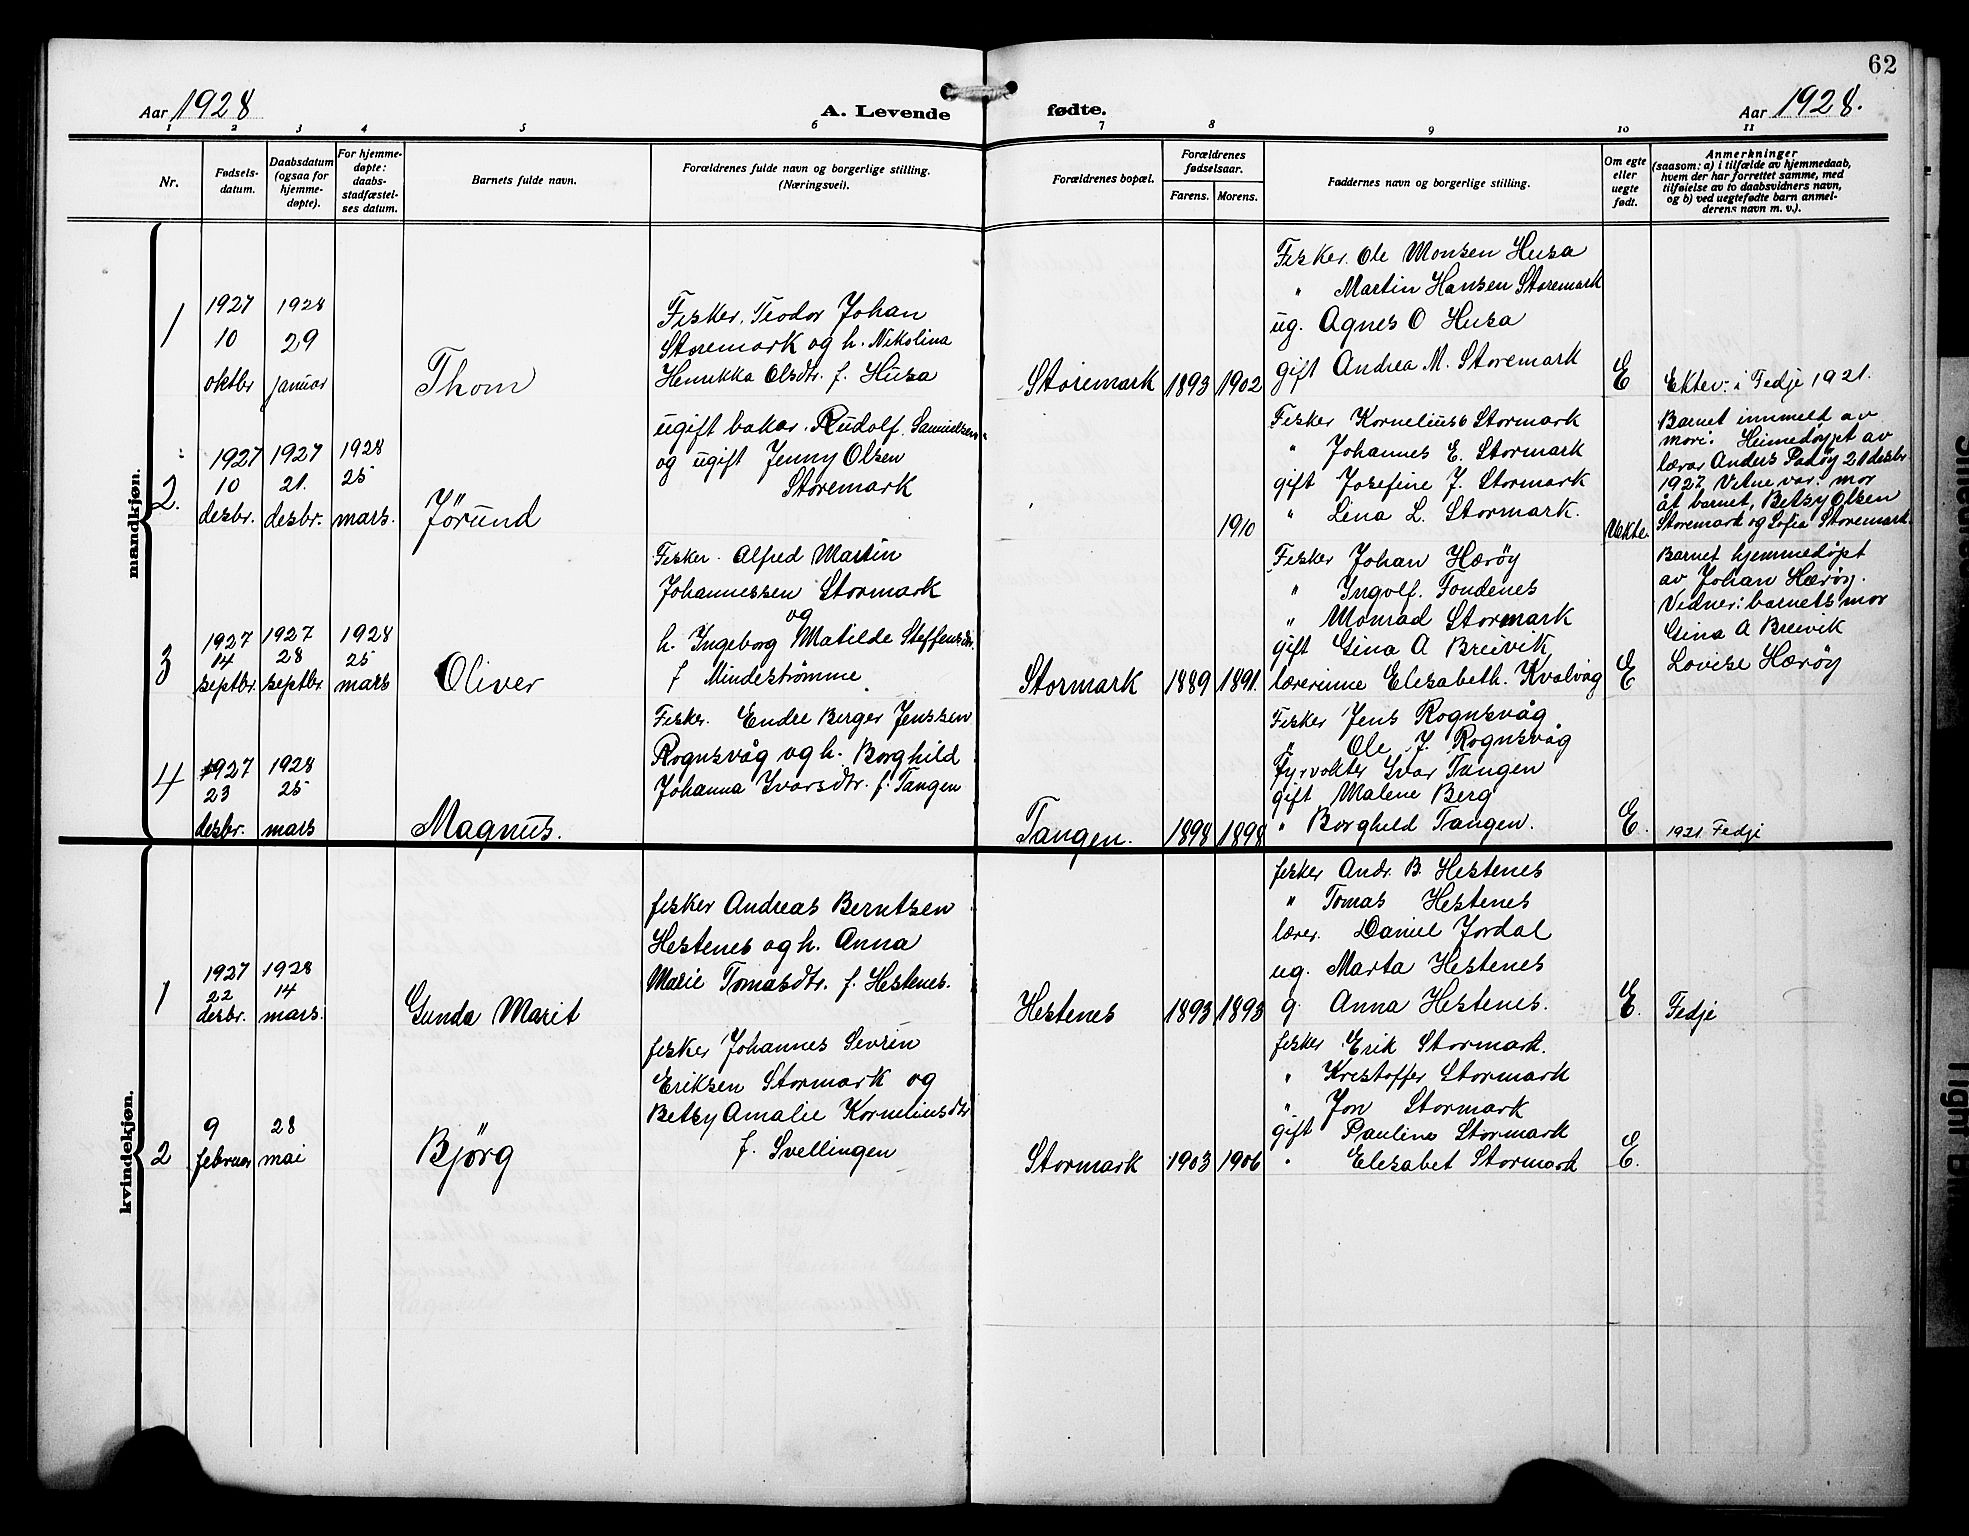 62
Aar 1928
A. Levende fødte.
Aar 1928.
1 2 3 4 5 6 7 8 9 10 11
Nr.
Fødsels-
datum.
Daabsdatum
(ogsaa for
hjemme-
døpte).
For hjemme-
døpte:
daabs-
stadfæstel-
ses datum.
Barnets fulde navn.
Forældrenes fulde navn og borgerlige stilling.
(Næringsvei).
Forældrenes bopæl.
Forældrenes
fødselsaar.
Farens. Morens.
Faddernes navn og borgerlige stilling.
Om egte
eller
uegte
født.
Anmerkninger
(saasom: a) i tilfælde av hjemmedaab,
hvem der har forrettet samme, med
tilføielse av to daabsvidners navn,
og b) ved uegtefødte barn anmel-
derens navn m. v.).
mandkjøn.
1
1927
10
oktbr
1928
29
januar
Thom
Fisker. Teodor Johan
Storemark og h. Nikolina
Henrikka Olsdtr. f. Husa
Storemark 1893 1902
Fisker. Ole Monsen Husa
" Martin Hansen Storemark
ug. Agnes O Husa
gift Andrea M. Storemark
E
Ektev: i Fedje 1921.
2.
1927
10
desbr.
1927
21.
desbr.
1928
25
mars.
Jörund
ugift bakar. Rudolf. Samuelsen
og ugift Jenny Olsen
Storemark
1910
Fisker Kornelius Stormark
" Johannes E. Stormark
gift Josefine J. Stormark
" Lina L. Stormark.
Uekte.
Barnet innmeldt av
mori. Heimedøypt av
lærar Anders Padøy 21 desbr
1927. Vitne var: mor
åt barnet, Betsy Olsen
Storemark og Sofia Storemark.
3
1927
14
septbr.
1927
28
septbr.
1928
25
mars
Oliver
Fisker. Alfred Martin
Johannessen Stormark
og
h. Ingeborg Matilde Steffensdtr.
f Mindestrømme
Stormark 1889 1891.
Fisker Johan Hærøy
" Ingolf. Tondenes
" Monrad Stormark
gift Gina A Breivik
lærerinne Elesabeth. Kvalvåg
E
Barnet hjemmedöpt
av Johan Hærøy.
Vidner: barnets mor
Gina A Breivik
Lovise Hærøy
4
1927
23
desbr.
1928
25
mars
Magnus.
Fisker. Endre Berger Jenssen
Rognsvåg og h. Borghild
Johanna Ivarsdtr. f. Tangen
Tangen. 1898 1898
Fisker Jens Rognsvåg
" Ole J. Rognsvåg
Fyrvokter Ivar Tangen
gift Malene Berg
" Borghild Tangen.
E.
1921 Fedje
kvindekjøn.
1
1927
22
desbr.
1928
14
mars.
Gunda Marit
fisker Andreas Berntsen
Hestenes og h. Anna
Marie Tomasdtr. f. Hestenes.
Hestenes 1893 1893
fisker Andr. B. Hestenes
" Tomas Hestenes
lærer. Daniel Jordal
ug. Marta Hestenes
g. Anna Hestenes.
E.
Fedje
2
9
februar
28
mai
Bjørg
fisker Johannes Sevrin
Eriksen Stormark og
Betsy Amalie Korneliusdtr
f. Svellingen
Stormark 1903 1906
fisker Erik Stormark.
" Kristoffer Stormark
" Jon Stormark
gift Pauline Stormark
" Elesabet Stormark
E.